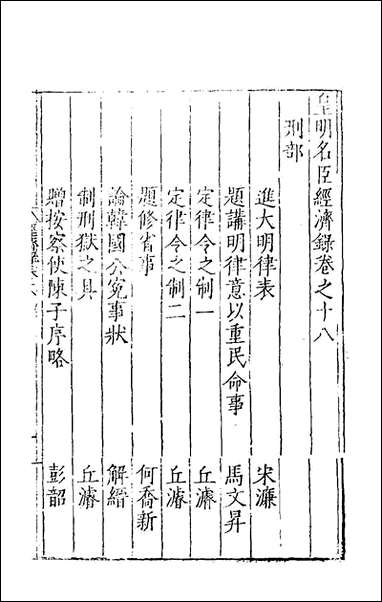 皇明名臣經濟錄卷之十八
刑部
進大明律表 宋濂
題講明律意以重民命事 馬文昇
定律令之制一 丘濬
定律令之制二 丘濬
題修省事 何喬新
論韓國公冤事狀 解縉
制刑獄之具 丘濬
贈按察使陳子序略 彭韶